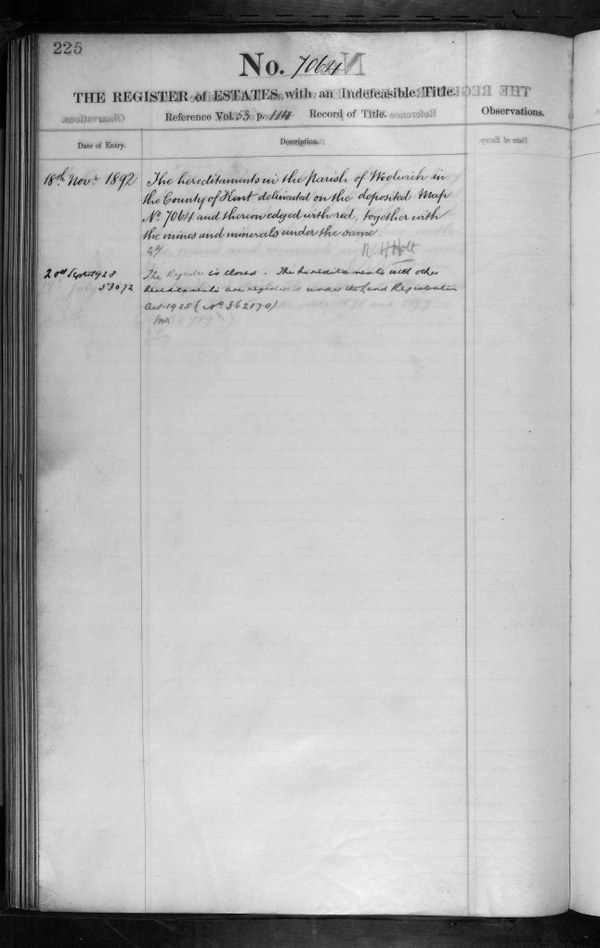 225
No. 7064
THE REGISTER of ESTATES with an Indefeasible Title.
Reference Vol. 53 p. 114 Record of Title.
Observations.
Date of Entry.
Description.
18th Novr 1892
The hereditaments in the Parish of Woolwich in
the County of Kent delineated on the deposited Map
No. 7064 and thereon edged with red, together with
the mines and minerals under the same.
R. H. Holt
2nd Sept 1928
53072
The Register is closed. The hereditaments with other
hereditaments are registered under the Land Registration
Act 1925 (No 362170)